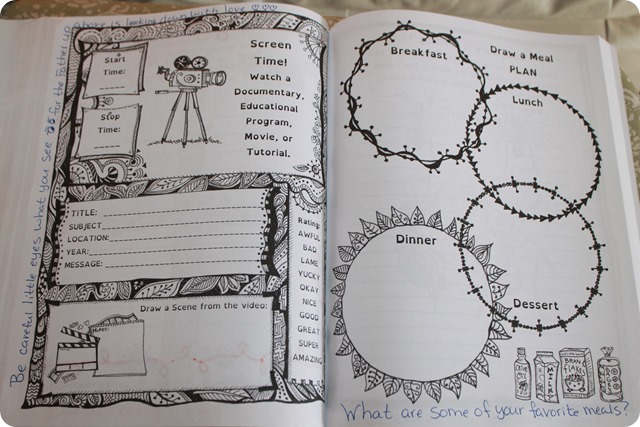 Be careful little eyes what you see
for the Father up above is looking down with love
Start
Time:
Stop
Time:
Screen
Time!
Watch a
Documentary,
Educational
Program,
Movie, or
Tutorial.
TITLE:
SUBJECT
LOCATION:
YEAR:
MESSAGE:
Rating:
AWFUL
BAD
LAME
YUCKY
OKAY
NICE
GOOD
GREAT
SUPER
AMAZING
Draw a Scene from the video:
Notes:
Breakfast
Draw a Meal
PLAN
Lunch
Dinner
Dessert
MILK
BRAN
FLAKES
What are some of your favorite meals?